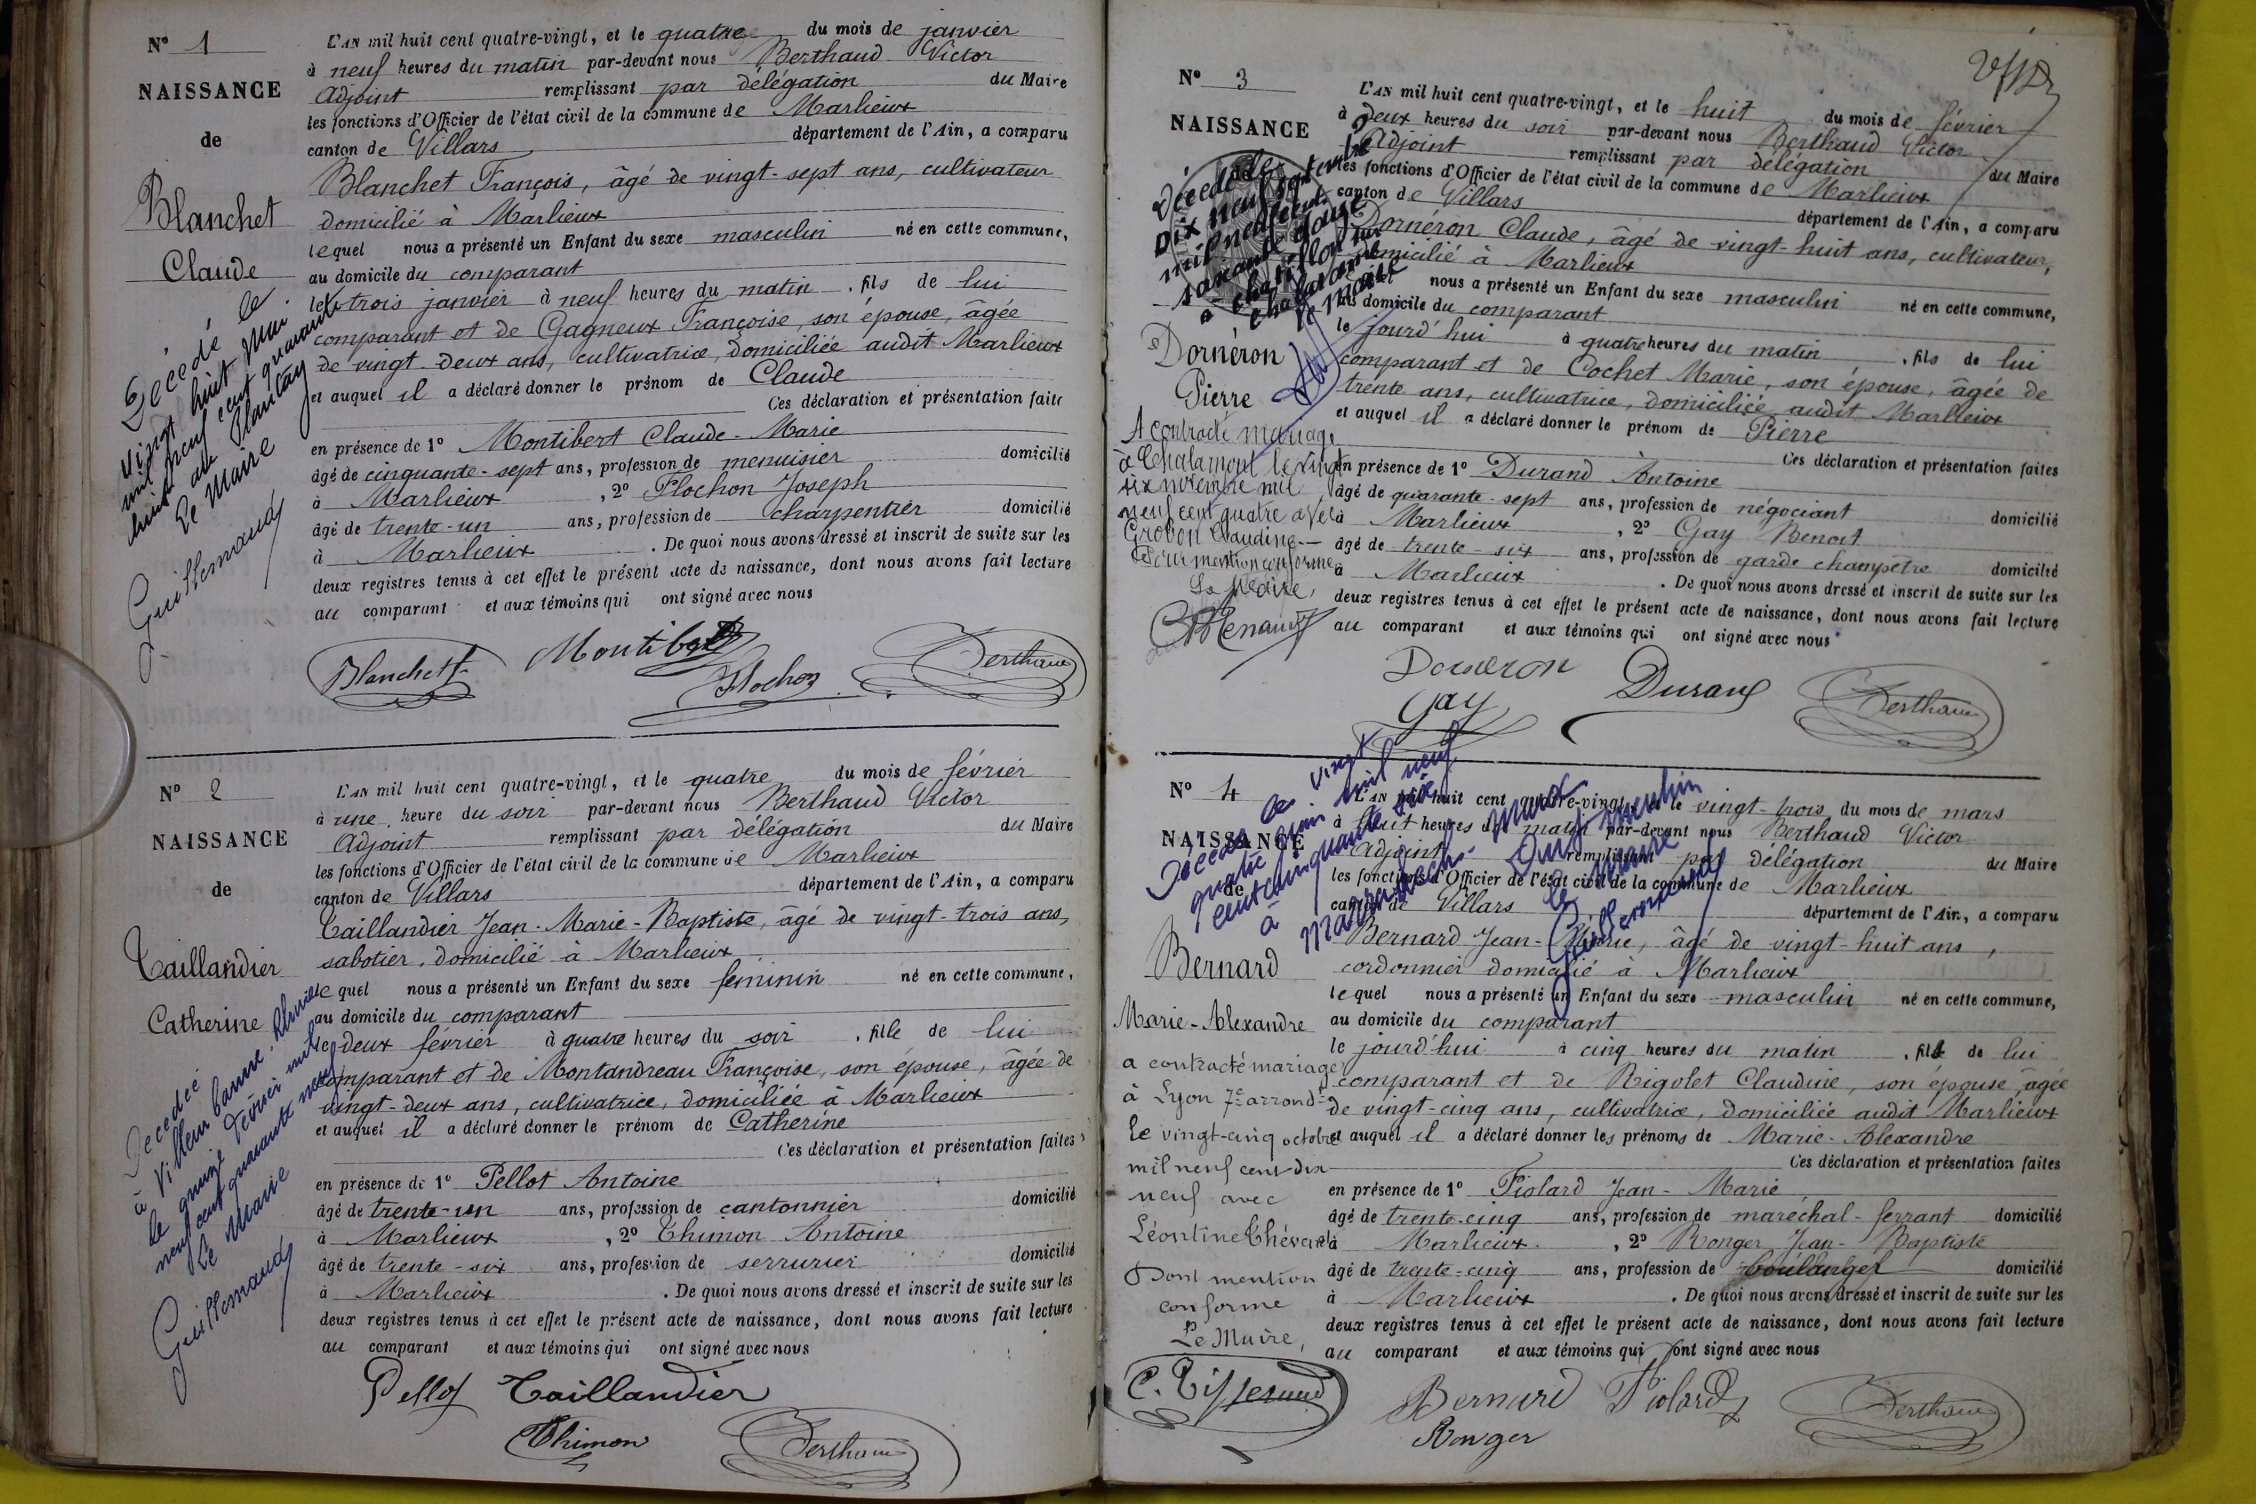 N° 1
NAISSANCE
de
Blanchet
Claude
Décédé le
vingt huit Mai
mil neuf cent quarante
huit au Plantay
Le Maire
Guillemaud
L'AN mil huit cent quatre-vingt, et le quatre du mois de janvier
à neuf heures du matin par-devant nous Berthaud Victor
Adjoint remplissant par délégation du Maire
les fonctions d'Officier de l'état civil de la commune de Marlieux
canton de Villars département de l'Ain, a comparu
Blanchet François, âgé de vingt-sept ans, cultivateur
domicilié à Marlieux
lequel nous a présenté un Enfant du sexe masculin né en cette commune,
au domicile du comparant
le trois janvier à neuf heures du matin, fils de lui
comparant et de Gagneux Françoise, son épouse, âgée
de vingt-deux ans, cultivatrice, domiciliée audit Marlieux
et auquel il a déclaré donner le prénom de Claude
Ces déclaration et présentation faites
en présence de 1° Montibert Claude-Marie
âgé de cinquante-sept ans, profession de menuisier domicilié
à Marlieux, 2° Flochon Joseph
âgé de trente-un ans, profession de charpentier domicilié
à Marlieux. De quoi nous avons dressé et inscrit de suite sur les
deux registres tenus à cet effet le présent acte de naissance, dont nous avons fait lecture
au comparant et aux témoins qui ont signé avec nous
Blanchet Montibert Flochon Berthaud
N° 2
NAISSANCE
de
Taillandier
Catherine
Décédée
à Villeurbanne, Rhône
le quinze février mil
neuf cent quarante neuf
Le Maire
Guillemaud
L'AN mil huit cent quatre-vingt, et le quatre du mois de février
à une heure du soir par-devant nous Berthaud Victor
Adjoint remplissant par délégation du Maire
les fonctions d'Officier de l'état civil de la commune de Marlieux
canton de Villars département de l'Ain, a comparu
Taillandier Jean-Marie-Baptiste, âgé de vingt-trois ans,
sabotier, domicilié à Marlieux
lequel nous a présenté un Enfant du sexe feminin né en cette commune,
au domicile du comparant
le deux février à quatre heures du soir, fille de lui
comparant et de Montandreau Françoise, son épouse, âgée de
vingt-deux ans, cultivatrice, domiciliée à Marlieux
et auquel il a déclaré donner le prénom de Catherine
Ces déclaration et présentation faites
en présence de 1° Pellot Antoine
âgé de trente-un ans, profession de cantonnier domicilié
à Marlieux, 2° Thimon Antoine
âgé de trente-six ans, profession de serrurier domicilié
à Marlieux. De quoi nous avons dressé et inscrit de suite sur les
deux registres tenus à cet effet le présent acte de naissance, dont nous avons fait lecture
au comparant et aux témoins qui ont signé avec nous
Pellot Taillandier
Thimon Berthaud
N° 3
NAISSANCE
Décédé le
Dix neuf septembre
mil neuf cent
soixante douze
à Chatillon sur
Chalaronne
le Maire
Dornéron
Pierre
A contracté mariage
à Chalamont le vingt
six novembre mil
neuf cent quatre avec
Grobon Claudine
Pour mention conforme
Le Maire,
L'AN mil huit cent quatre-vingt, et le huit du mois de février
à deux heures du soir par-devant nous Berthaud Victor
Adjoint remplissant par délégation du Maire
les fonctions d'Officier de l'état civil de la commune de Marlieux
canton de Villars département de l'Ain, a comparu
Dornéron Claude, âgé de vingt-huit ans, cultivateur,
domicilié à Marlieux
nous a présenté un Enfant du sexe masculin né en cette commune,
au domicile du comparant
le jourd'hui à quatre heures du matin, fils de lui
comparant et de Cochet Marie, son épouse, âgée de
trente ans, cultivatrice, domiciliée audit Marlieux
et auquel il a déclaré donner le prénom de Pierre
Ces déclaration et présentation faites
en présence de 1° Durand Antoine
âgé de quarante-sept ans, profession de négociant domicilié
à Marlieux, 2° Gay Benoit
âgé de trente-six ans, profession de garde champêtre domicilié
à Marlieux. De quoi nous avons dressé et inscrit de suite sur les
deux registres tenus à cet effet le présent acte de naissance, dont nous avons fait lecture
au comparant et aux témoins qui ont signé avec nous
Dorneron Durand
Gay Berthaud
N° 4
NAISSANCE
de
Décédé le vingt
quatre juin mil neuf
cent cinquante six
à
Le Maire
Guillemaud
Bernard
Marie-Alexandre
a contracté mariage
à Lyon 7e arrondt
le vingt-cinq octobre
mil neuf cent dix
neuf avec
Léontine Thévenet
Dont mention
conforme
Le Maire,
C. Tisserand
L'AN mil huit cent quatre-vingt, et le vingt-trois du mois de mars
à huit heures du matin par-devant nous Berthaud Victor
Adjoint remplissant par délégation du Maire
les fonctions d'Officier de l'état civil de la commune de Marlieux
canton de Villars département de l'Ain, a comparu
Bernard Jean-Marie, âgé de vingt-huit ans,
cordonnier domicilié à Marlieux
lequel nous a présenté un Enfant du sexe masculin né en cette commune,
au domicile du comparant
le jourd'hui à cinq heures du matin, fils de lui
comparant et de Rigolet Claudine, son épouse, âgée
de vingt-cinq ans, cultivatrice, domiciliée audit Marlieux
et auquel il a déclaré donner les prénoms de Marie-Alexandre
Ces déclaration et présentation faites
en présence de 1° Fiolard Jean-Marie
âgé de trente-cinq ans, profession de maréchal-ferrant domicilié
à Marlieux, 2° Ronger Jean-Baptiste
âgé de trente-cinq ans, profession de boulanger domicilié
à Marlieux. De quoi nous avons dressé et inscrit de suite sur les
deux registres tenus à cet effet le présent acte de naissance, dont nous avons fait lecture
au comparant et aux témoins qui ont signé avec nous
Bernard Fiolard
Ronger Berthaud